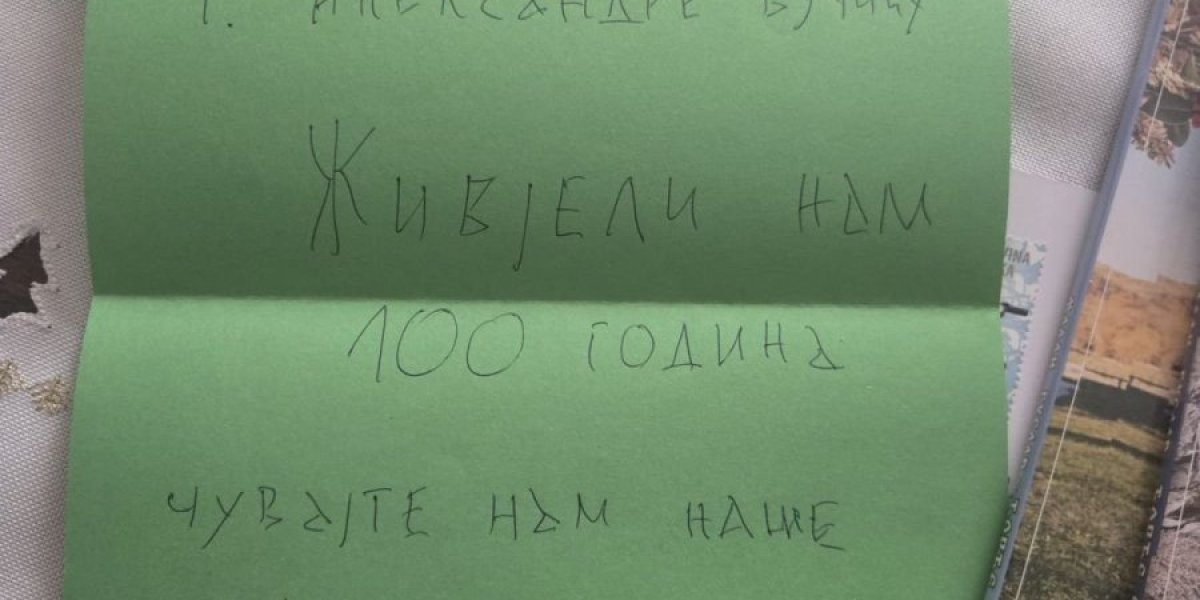 Г. АЛЕКСАНДРЕ ВУЧИЋУ
ЖИВЈЕЛИ НАМ
100 ГОДИНА
ЧУВАЈТЕ НАМ НАШЕ